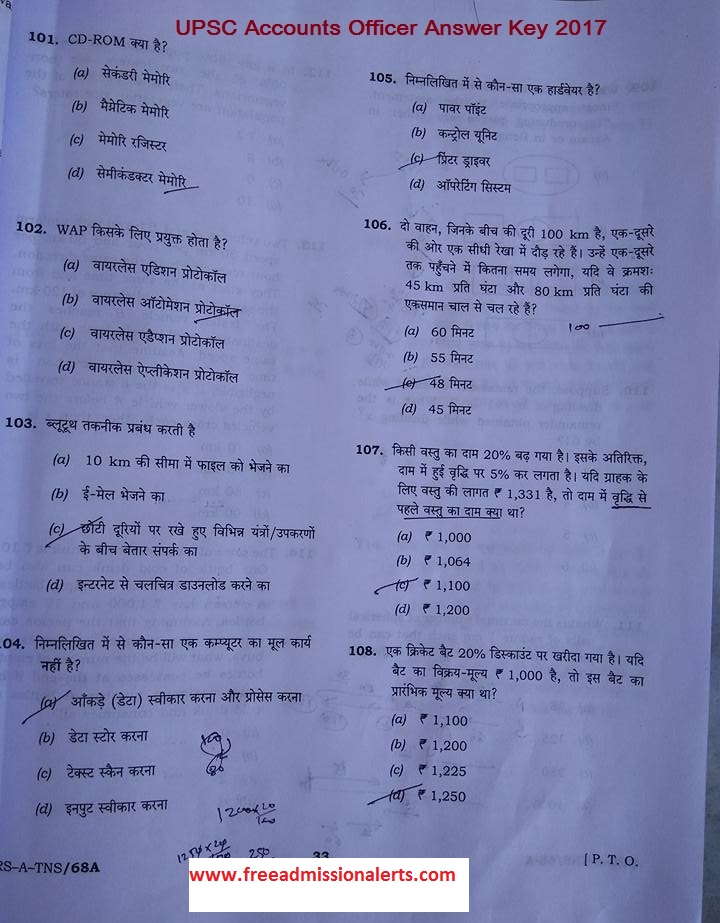 UPSC Accounts Officer Answer Key 2017
101. CD-ROM क्या है?
(a) सेकंडरी मेमोरि
(b) मैग्नेटिक मेमोरि
(c) मेमोरि रजिस्टर
(d) सेमीकंडक्टर मेमोरि
102. WAP किसके लिए प्रयुक्त होता है?
(a) वायरलेस एडिशन प्रोटोकॉल
(b) वायरलेस ऑटोमेशन प्रोटोकॉल
(c) वायरलेस एडैप्शन प्रोटोकॉल
(d) वायरलेस ऐप्लीकेशन प्रोटोकॉल
103. ब्लूटूथ तकनीक प्रबंध करती है
(a) 10 km की सीमा में फाइल को भेजने का
(b) ई-मेल भेजने का
(c) छोटी दूरियों पर रखे हुए विभिन्न यंत्रों/उपकरणों
के बीच बेतार संपर्क का
(d) इन्टरनेट से चलचित्र डाउनलोड करने का
04. निम्नलिखित में से कौन-सा एक कम्प्यूटर का मूल कार्य
नहीं है?
(a) आँकड़े (डेटा) स्वीकार करना और प्रोसेस करना
(b) डेटा स्टोर करना
(c) टेक्स्ट स्कैन करना
(d) इनपुट स्वीकार करना
105. निम्नलिखित में से कौन-सा एक हार्डवेयर है?
(a) पावर पॉइंट
(b) कन्ट्रोल यूनिट
(c) प्रिंटर ड्राइवर
(d) ऑपरेटिंग सिस्टम
106. दो वाहन, जिनके बीच की दूरी 100 km है, एक-दूसरे
की ओर एक सीधी रेखा में दौड़ रहे हैं। उन्हें एक-दूसरे
तक पहुँचने में कितना समय लगेगा, यदि वे क्रमशः
45 km प्रति घंटा और 80 km प्रति घंटा की
एकसमान चाल से चल रहे हैं?
100
(a) 60 मिनट
(b) 55 मिनट
(c) 48 मिनट
(d) 45 मिनट
107. किसी वस्तु का दाम 20% बढ़ गया है। इसके अतिरिक्त,
दाम में हुई वृद्धि पर 5% कर लगता है। यदि ग्राहक के
लिए वस्तु की लागत ₹ 1,331 है, तो दाम में वृद्धि से
पहले वस्तु का दाम क्या था?
(a) ₹ 1,000
(b) ₹ 1,064
(c) ₹ 1,100
(d) ₹ 1,200
108. एक क्रिकेट बैट 20% डिस्काउंट पर खरीदा गया है। यदि
बैट का विक्रय-मूल्य ₹ 1,000 है, तो इस बैट का
प्रारंभिक मूल्य क्या था?
(a) ₹ 1,100
(b) ₹ 1,200
(c) ₹ 1,225
(d) ₹ 1,250
1200×20
100
250
RS-A-TNS/68A
33
[ P. T. O.
www.freeadmissionalerts.com